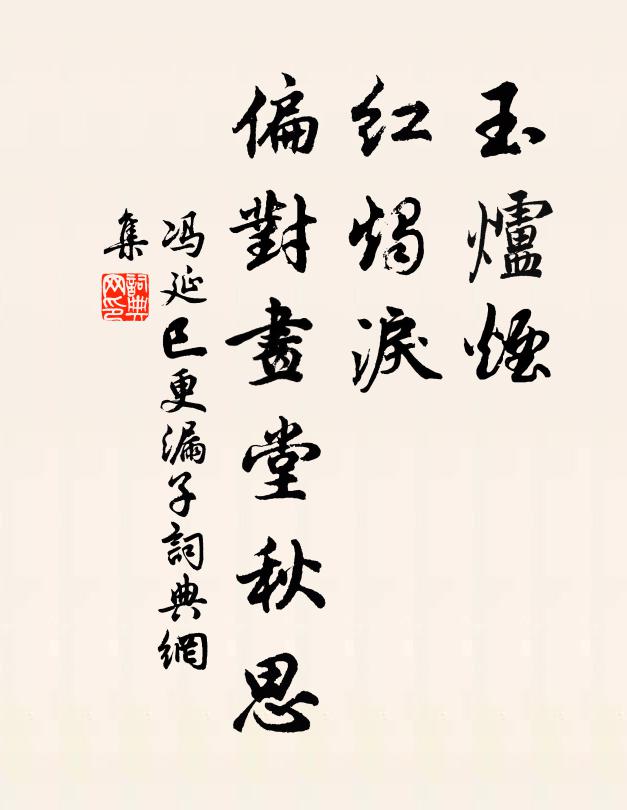 玉爐煙
紅燭淚
偏對畫堂秋思
冯延巳更漏子詞典網
集
詞典
网印